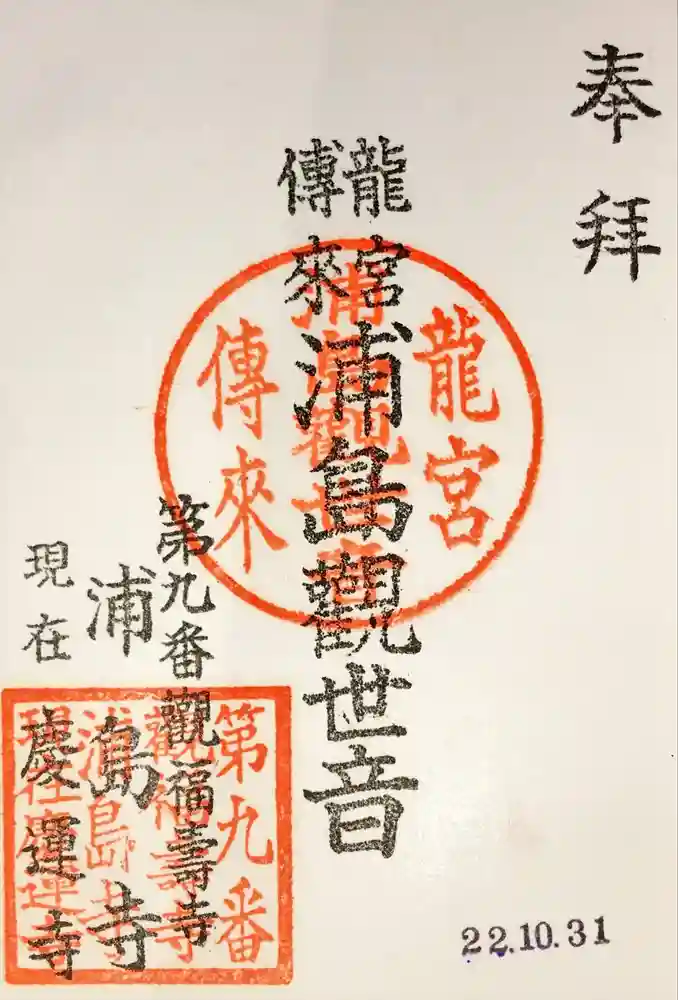 奉拜
龍宮
傳來
浦島觀世音
龍宮
浦島觀世音
傳來
第九番觀福壽寺
浦島寺
現在慶運寺
第九番
觀福壽寺
浦島寺
現在慶運寺
22.10.31